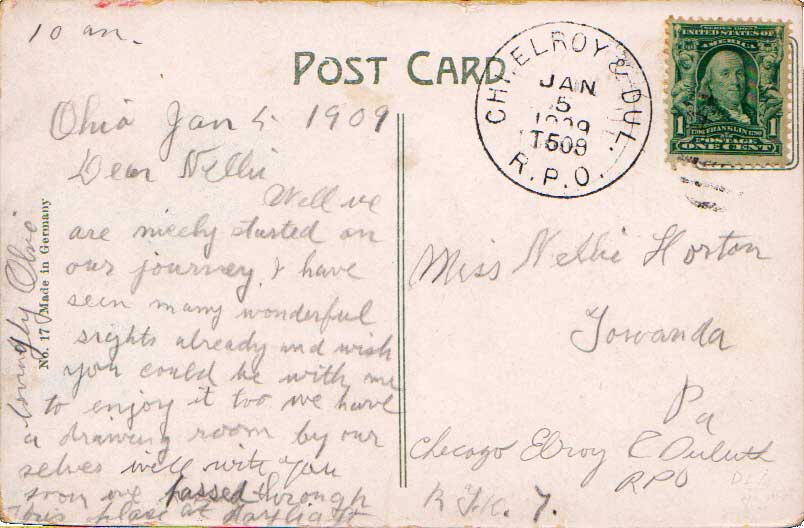 10 am.
POST CARD
Ohio Jan 5. 1909
Dear Nellie
Well we
are nicely started on
our journey. I have
seen many wonderful
sights already and wish
you could be with me
to enjoy it too we have
a drawing room by our
selves will write you
soon we passed through
this place at daylight
Lovingly Ohio
No. 17 Made in Germany
CHI. ELROY & DUL.
JAN
5
1909
T509
R.P.O.
SERIES 1902
UNITED STATES OF
AMERICA
1 1
1706 FRANKLIN 1790
POSTAGE
ONE CENT
Miss Nellie Horton
Towanda
Pa
Chicago Elroy & Duluth
RPO